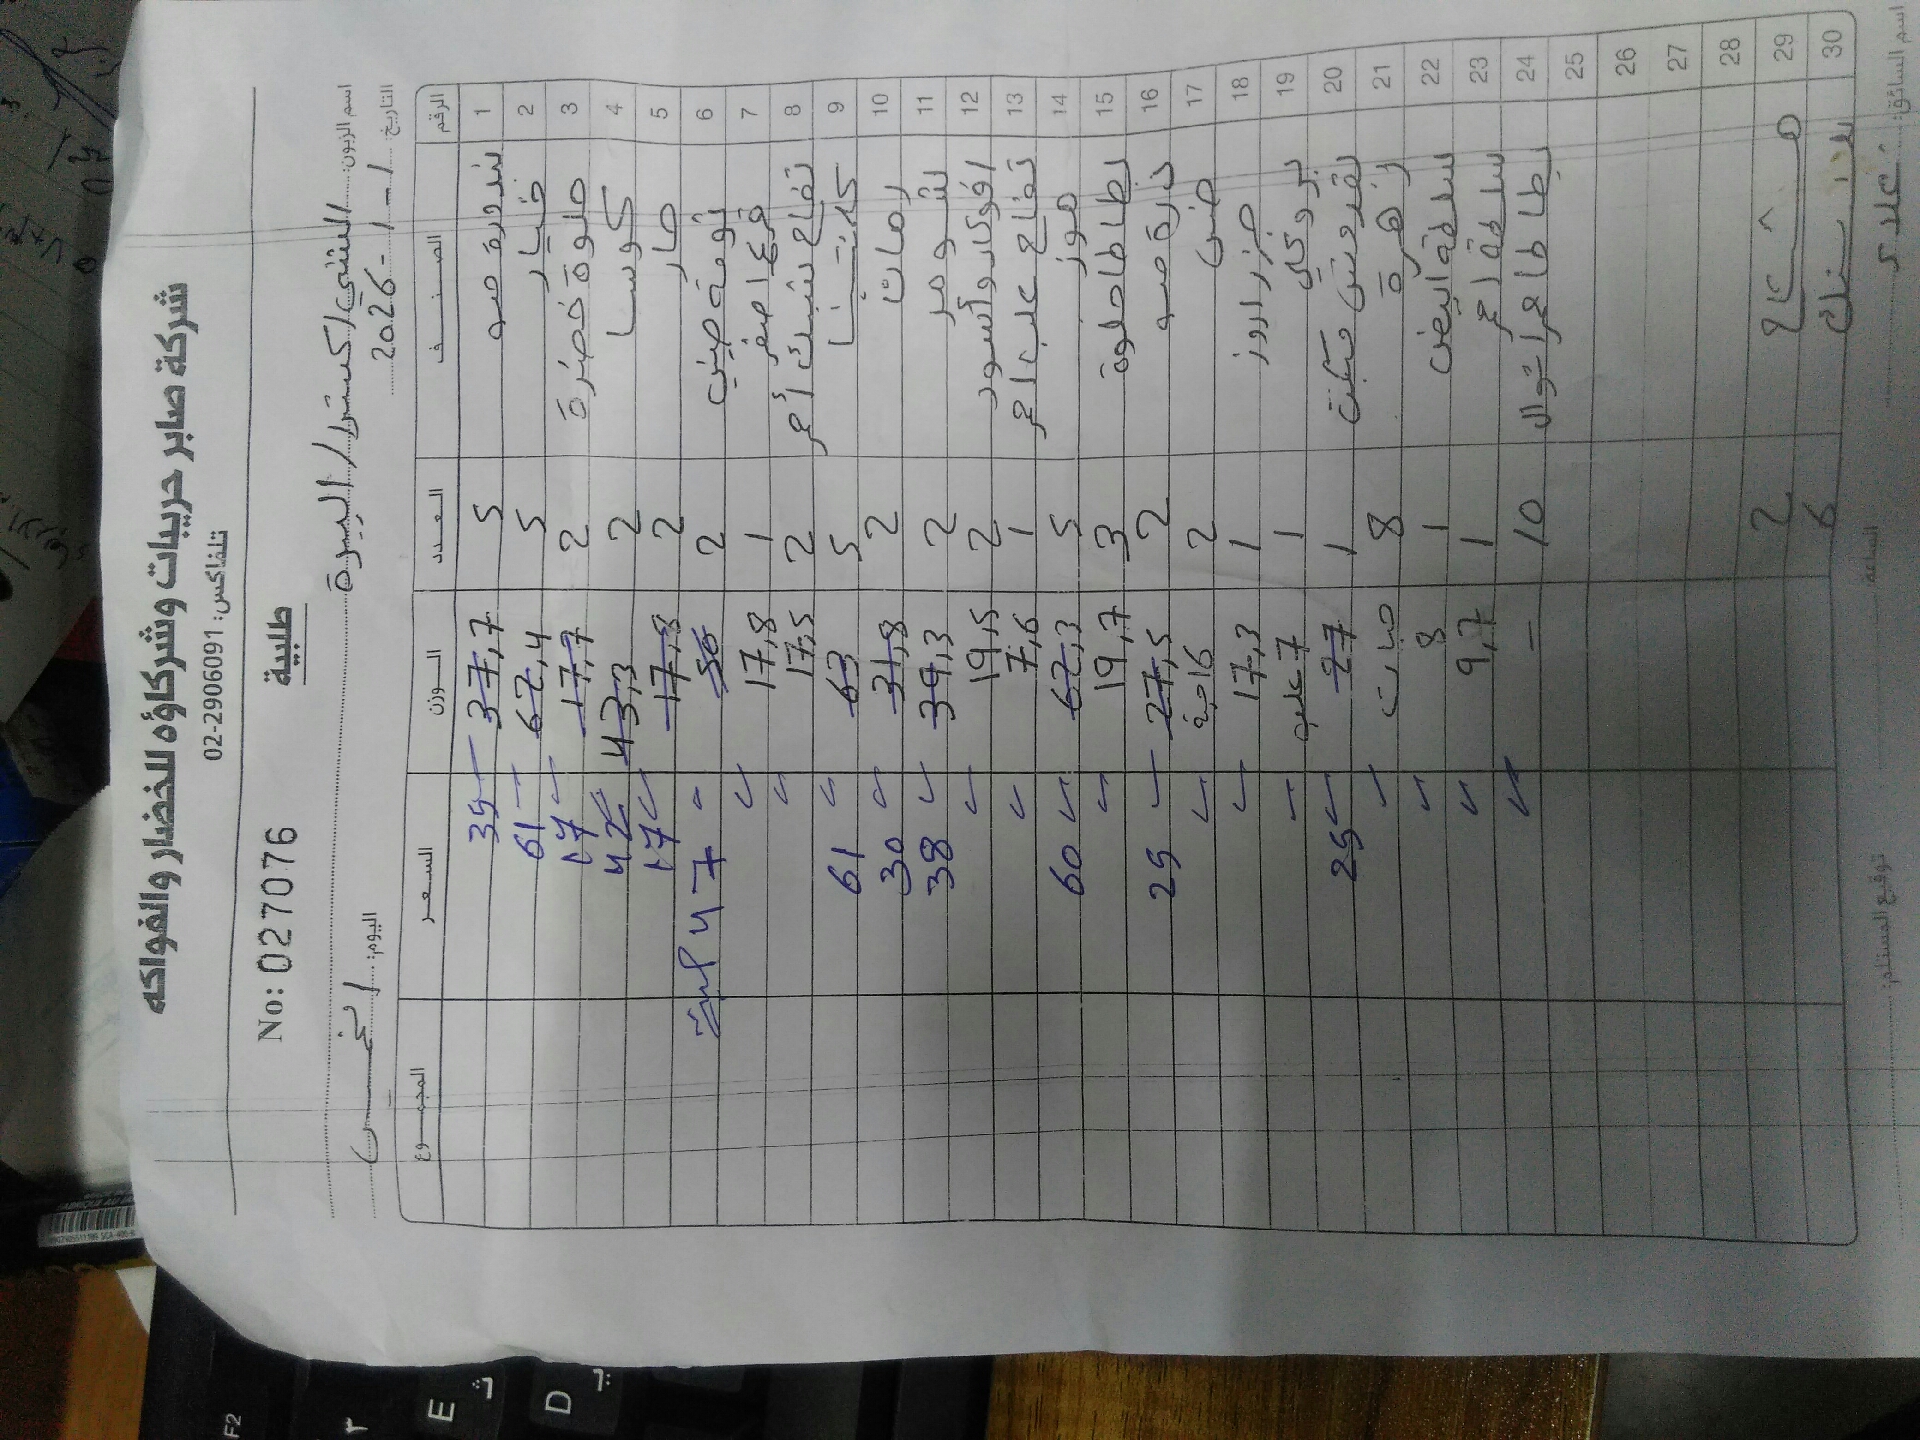 شركة صابر حريبات وشركاؤه للخضار والفواكه
تلفاكس: 02-2906091
طلبية
No: 027076
اسم الزبون: الشني اكسترا / البيرة
اليوم: الخميس التاريخ 1-1-2026
الرقم الصنف العدد الوزن السعر المجموع
1 بندورة صو 5 37,7 35
2 خيار 5 62,4 61
3 حلوة خضرة 2 17,7 17
4 كوسا 2 43,3 42
5 حار 2 17,8 17
6 ثومة صيني 2 47
7 قرع اصفر 1 17,8
8 تفاح شبك أحمر 2 17,5
9 5 63 61
10 رمان 2 31,8 30
11 شومر 2 39,3 38
12 افوكادو أسود 2 19,5
13 تفاح علب احمر 1 7,6
14 موز 5 62,3 60
15 بطاطا حلوة 3 19,7
16 ذرة صو 2 27,5 25
17 2 16
18 جزر اروز 1 17,3
19 بروكلي 1 7 علب
20 1 27 25
21 زهرة 8 حبات
22 ابيض 1 8
23 احمر 1 9,7
24 بطاطا 10 –
25
26
27
28
29 2
30 6
اسم السائق: الساعة توقيع المستلم:
F2
E
D